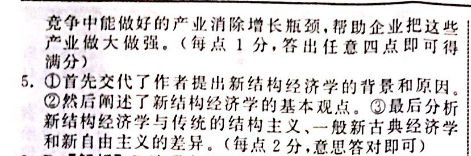 竞争中能做好的产业消除增长瓶颈,帮助企业把这些
产业做大做强。(每点 1 分,答出任意四点即可得
满分)
5. ①首先交代了作者提出新结构经济学的背景和原因。
②然后阐述了新结构经济学的基本观点。③最后分析
新结构经济学与传统的结构主义、一般新古典经济学
和新自由主义的差异。(每点 2 分,意思答对即可)